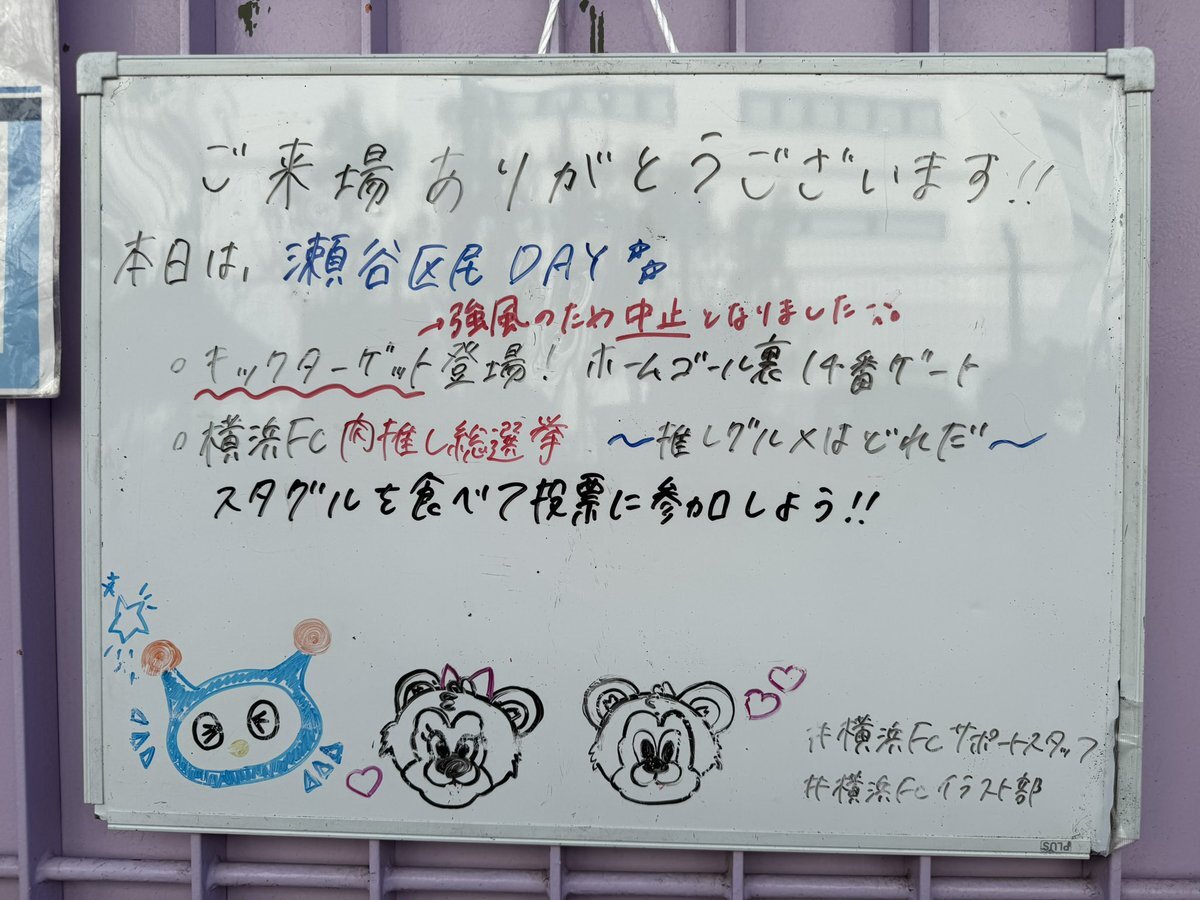 ご来場ありがとうございます!!
本日は、瀬谷区民DAY
→強風のため中止となりました
○キックターゲット登場! ホームゴール裏14番ゲート
○横浜FC肉推し総選挙 〜推しグルメはどれだ〜
スタグルを食べて投票に参加しよう!!
#横浜FCサポートスタッフ
#横浜FCイラスト部
PLUS